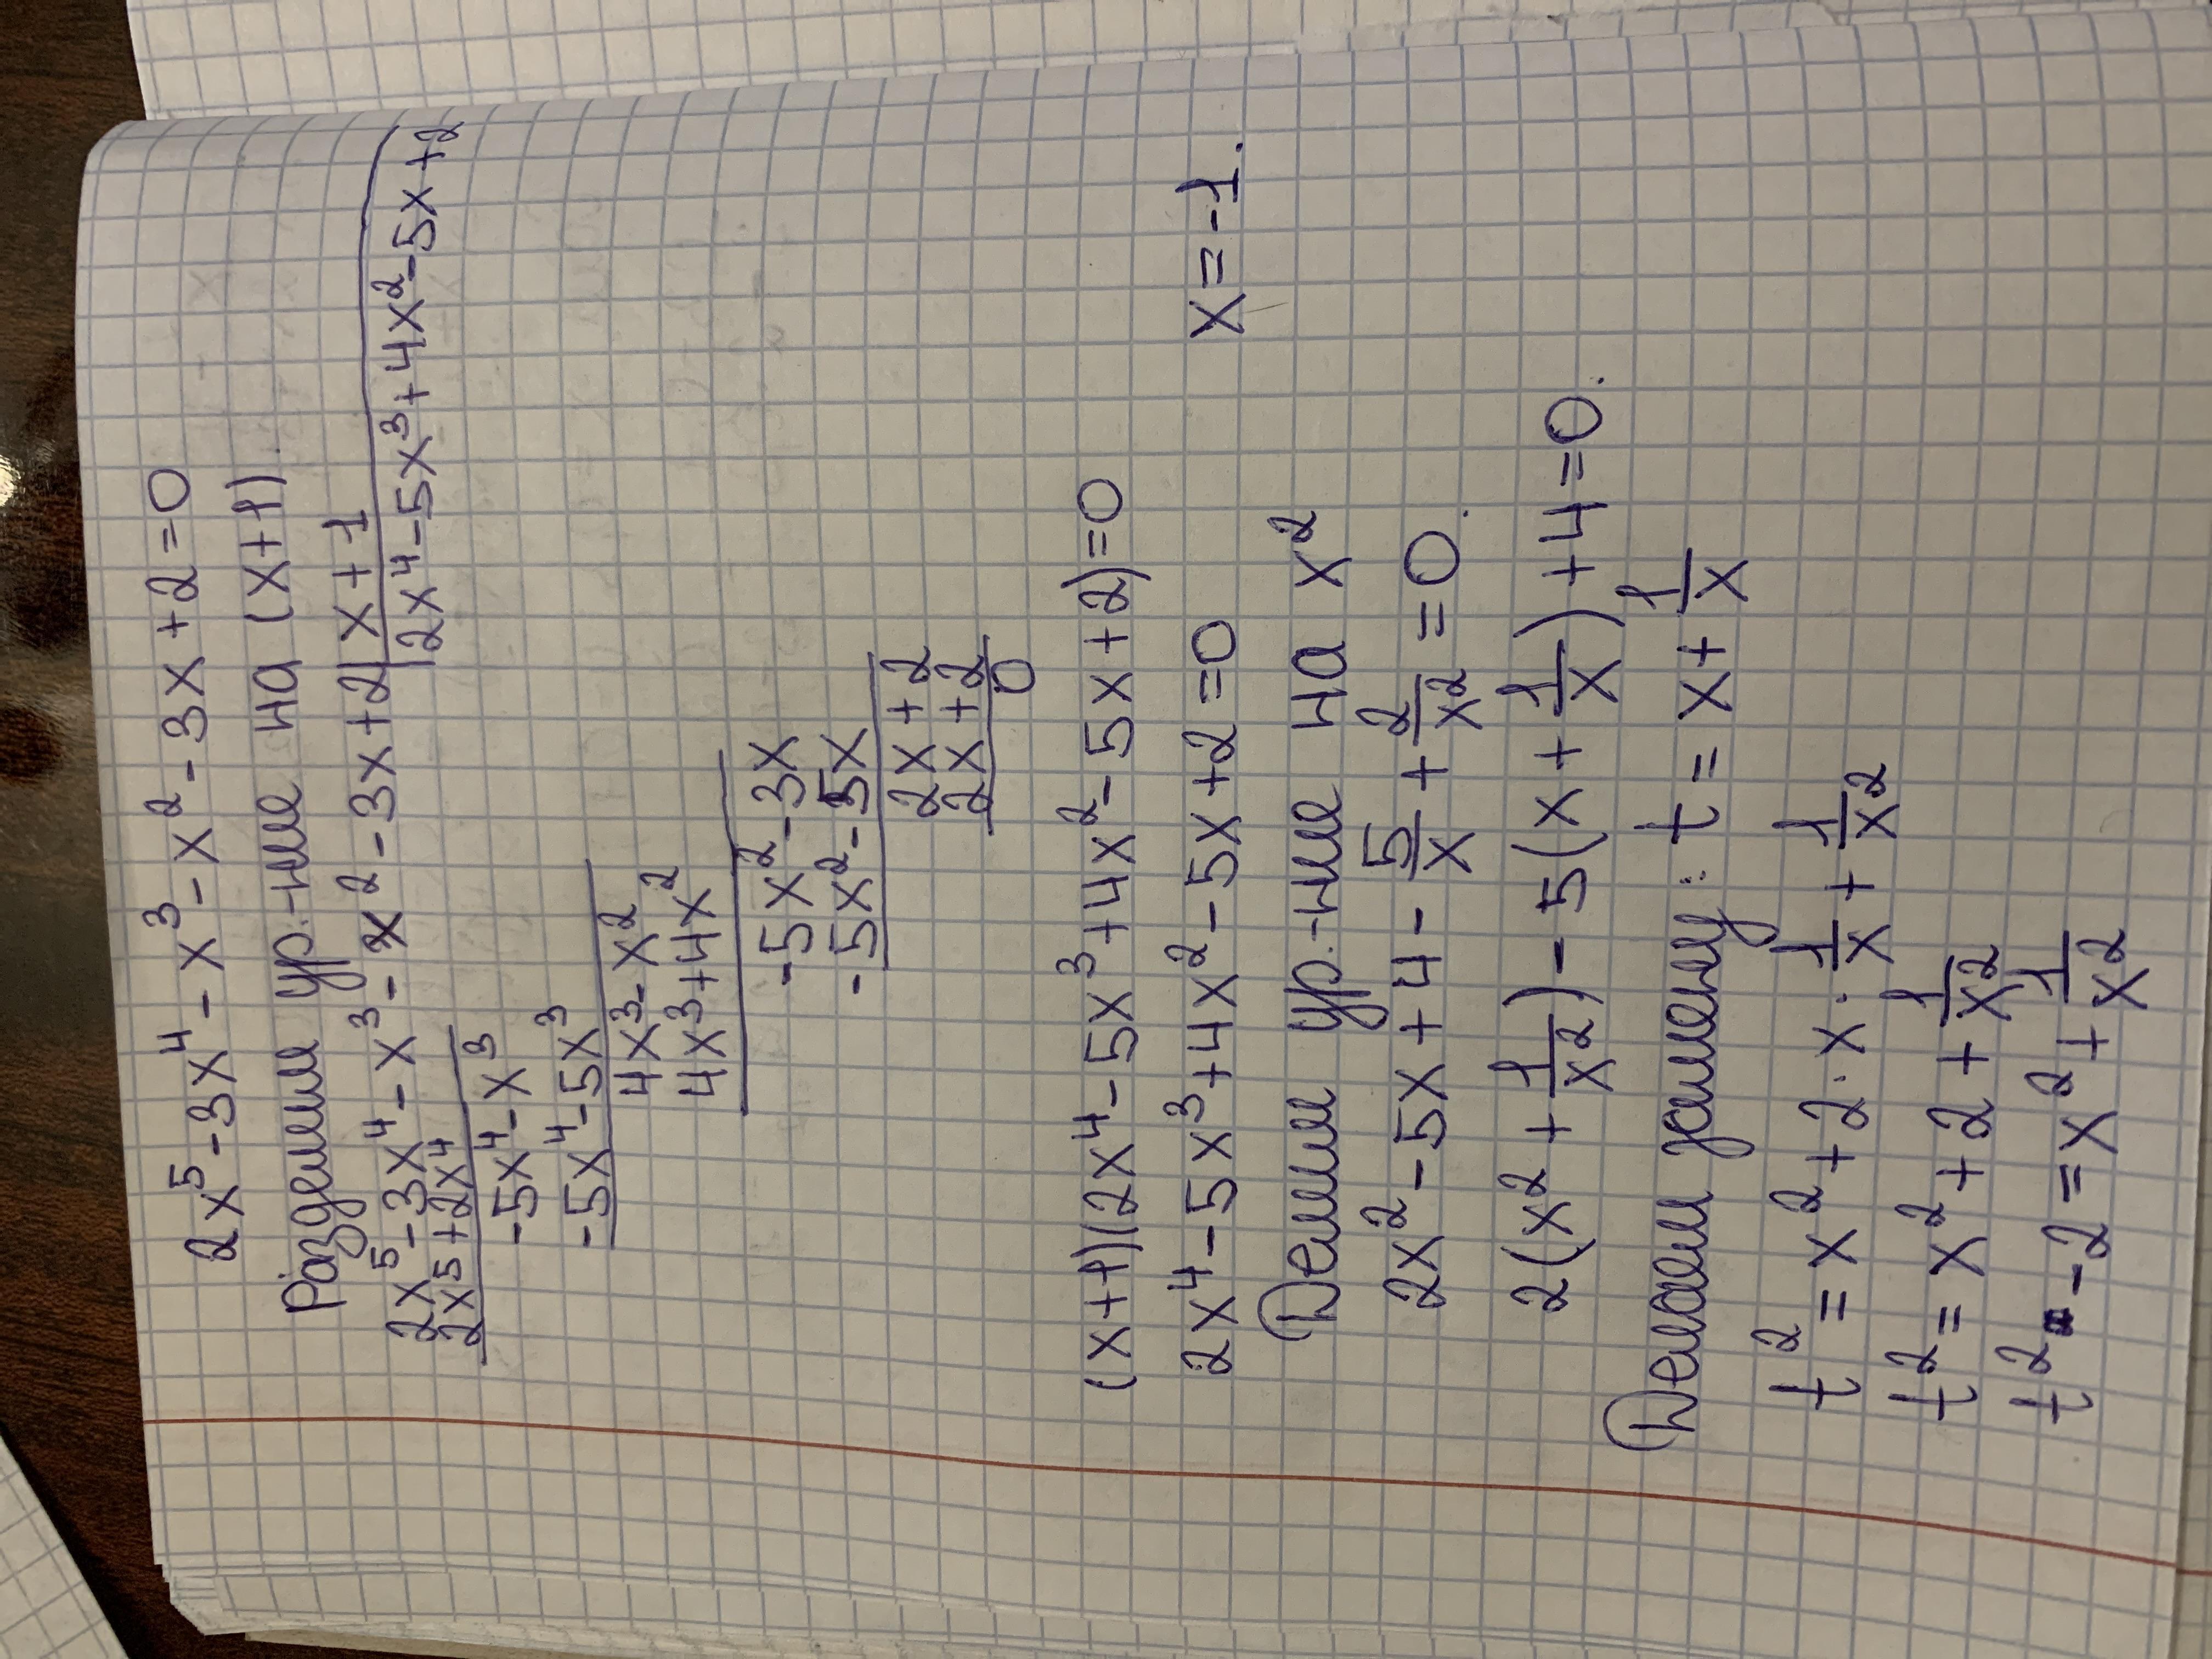 2x⁵-3x⁴-x³-x²-3x+2=0
Разделим ур.-ние на (x+1).
2x⁵-3x⁴-x³-x²-3x+2|x+1
2x⁵+2x⁴ 2x⁴-5x³+4x²-5x+2
-5x⁴-x³
-5x⁴-5x³
4x³-x²
4x³+4x²
-5x²-3x
-5x²-5x
2x+2
2x+2
0
(x+1)(2x⁴-5x³+4x²-5x+2)=0
2x⁴-5x³+4x²-5x+2=0 x=-1.
Делим ур.-ние на x²
2x²-5x+4-5/x+2/x²=0.
2(x²+1/x²)-5(x+1/x)+4=0.
Делаем замену: t=x+1/x
t²=x²+2·x·1/x+1/x²
t²=x²+2+1/x²
t²-2=x²+1/x²